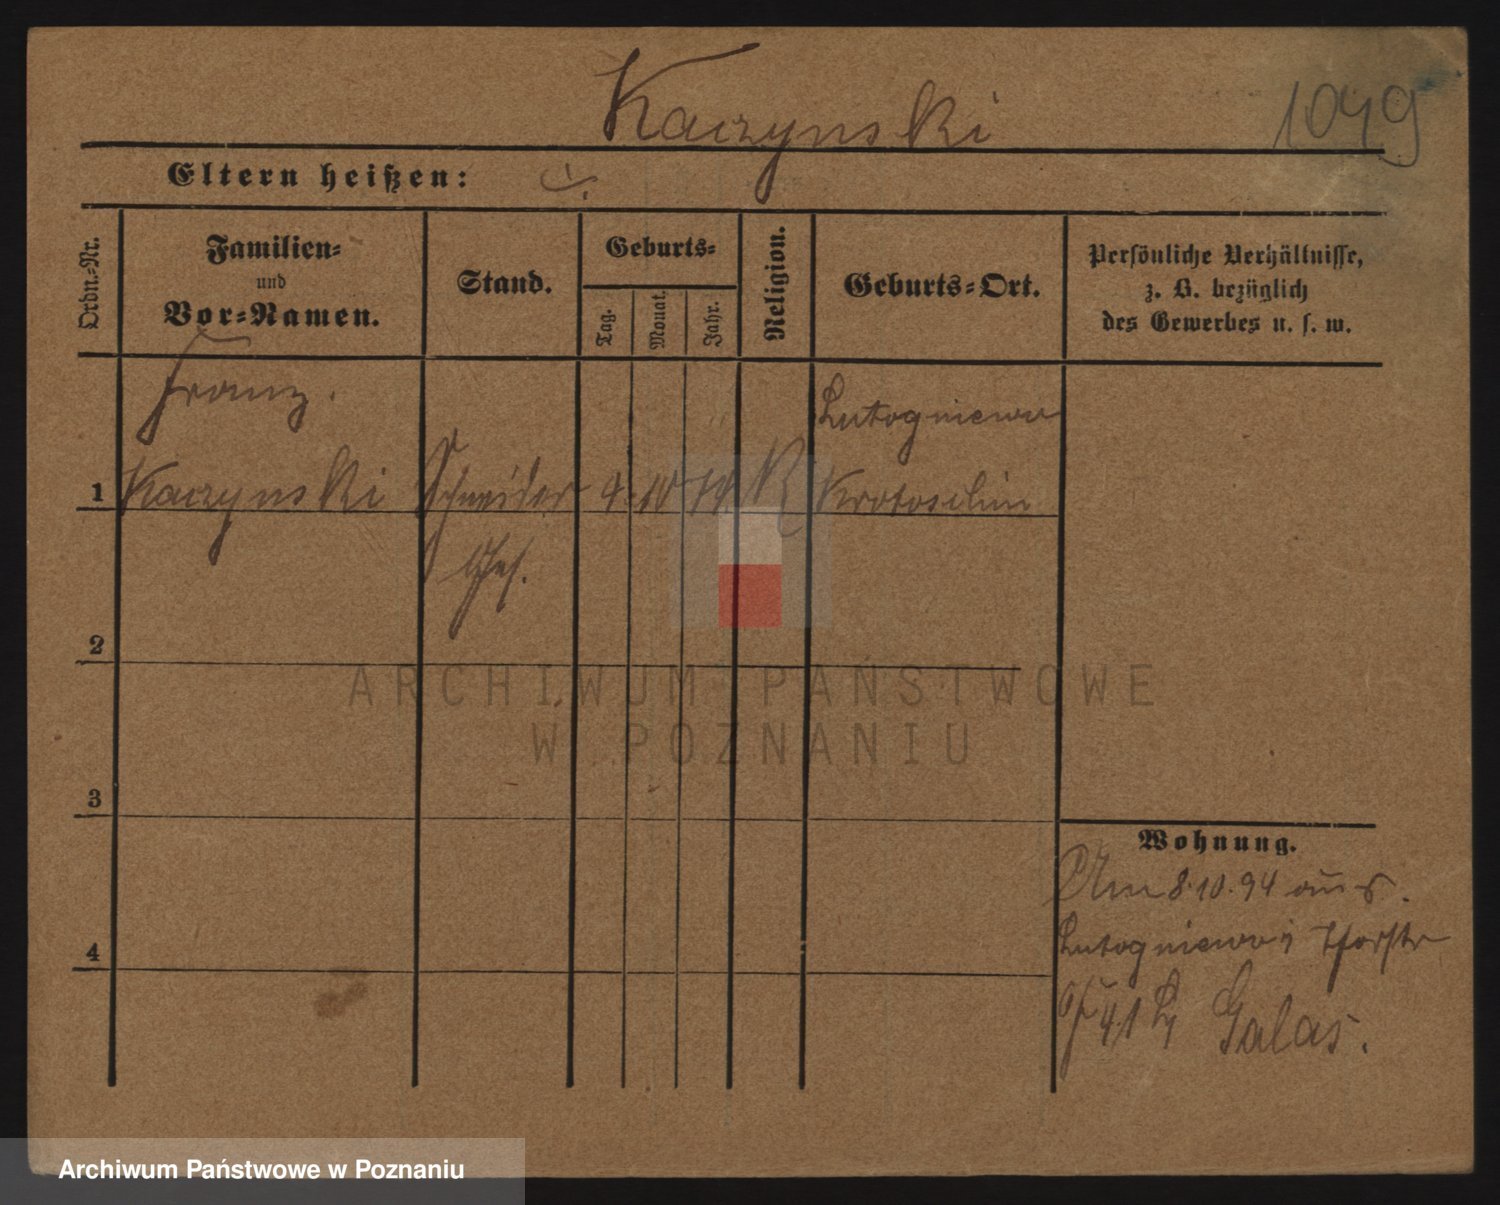 Kaczynski
1049
Eltern heißen:
Ordn.-Nr.
Familien-
und
Vor-Namen.
Stand.
Geburts-
Tag.
Monat.
Jahr.
Religion.
Geburts-Ort.
Persönliche Verhältnisse,
z. B. bezüglich
des Gewerbes u. s. w.
Franz.
Lutogniewo
1 Kaczynski Schneider 4. 10 74 K Krotoschin
Ges.
2
ARCHIWUM PAŃSTWOWE
W POZNANIU
3
Wohnung.
Am 8.10.94 aus
Lutogniewo
4
4.1 Galas.
Archiwum Państwowe w Poznaniu